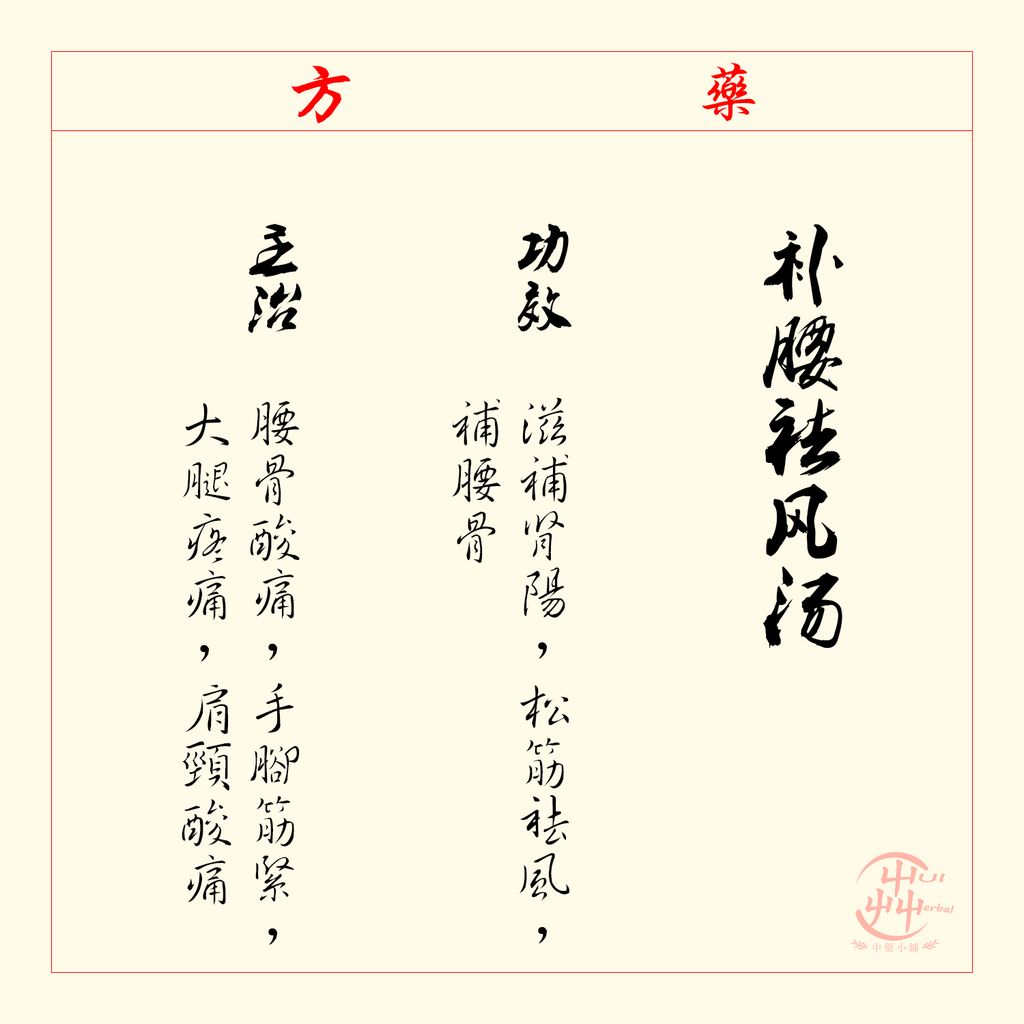 藥方
补腰祛风汤
功效
滋補肾陽，松筋祛風，
補腰骨
主治
腰骨酸痛，手腳筋緊，
大腿疼痛，肩頸酸痛
Hui
Herbal
中藥小舖